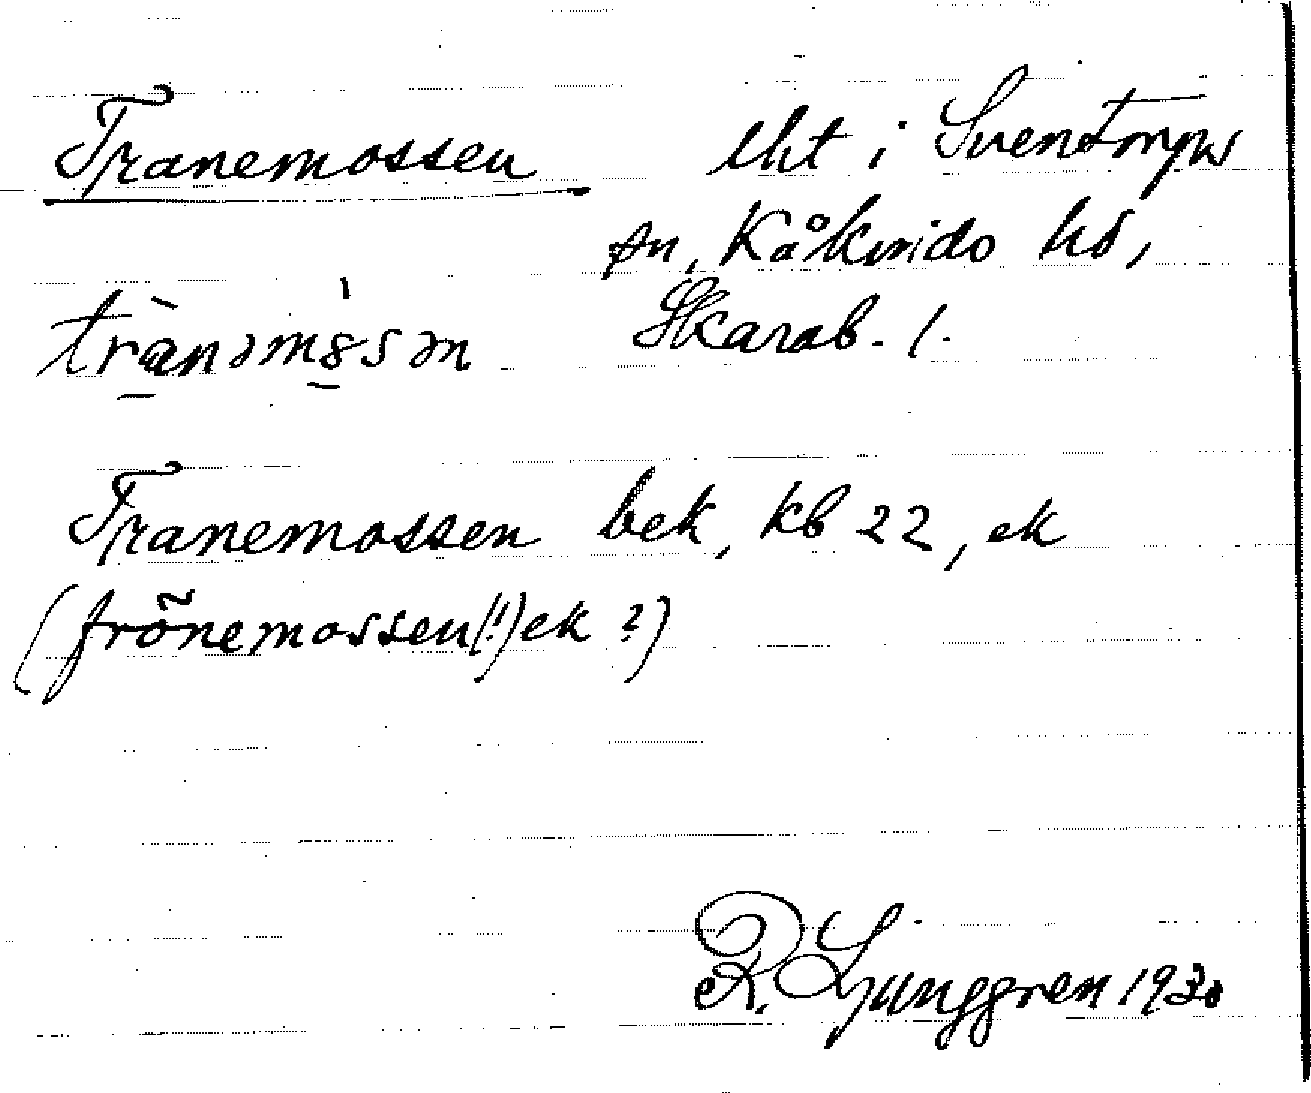 Tranemossen lht i Sventorps
sn, Kåkinds hd,
trànəm8sən Skarab. l.
Tranemossen bek, kb 22, ek
(frõnemossen(!) ek ?)
R. Ljunggren 1930